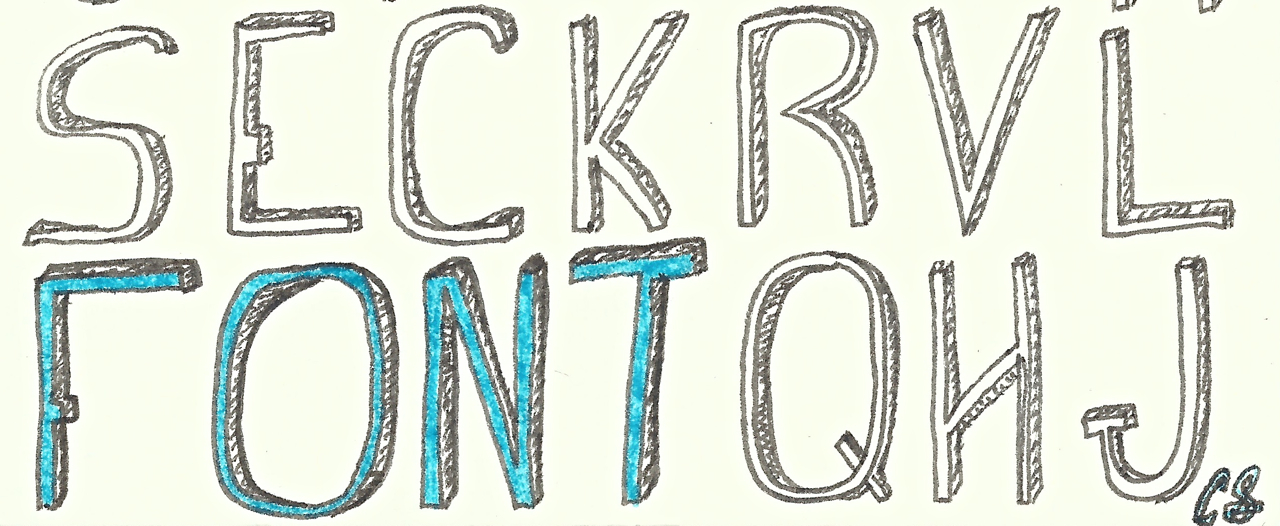 SECKRVL
FONTQHJ
CS